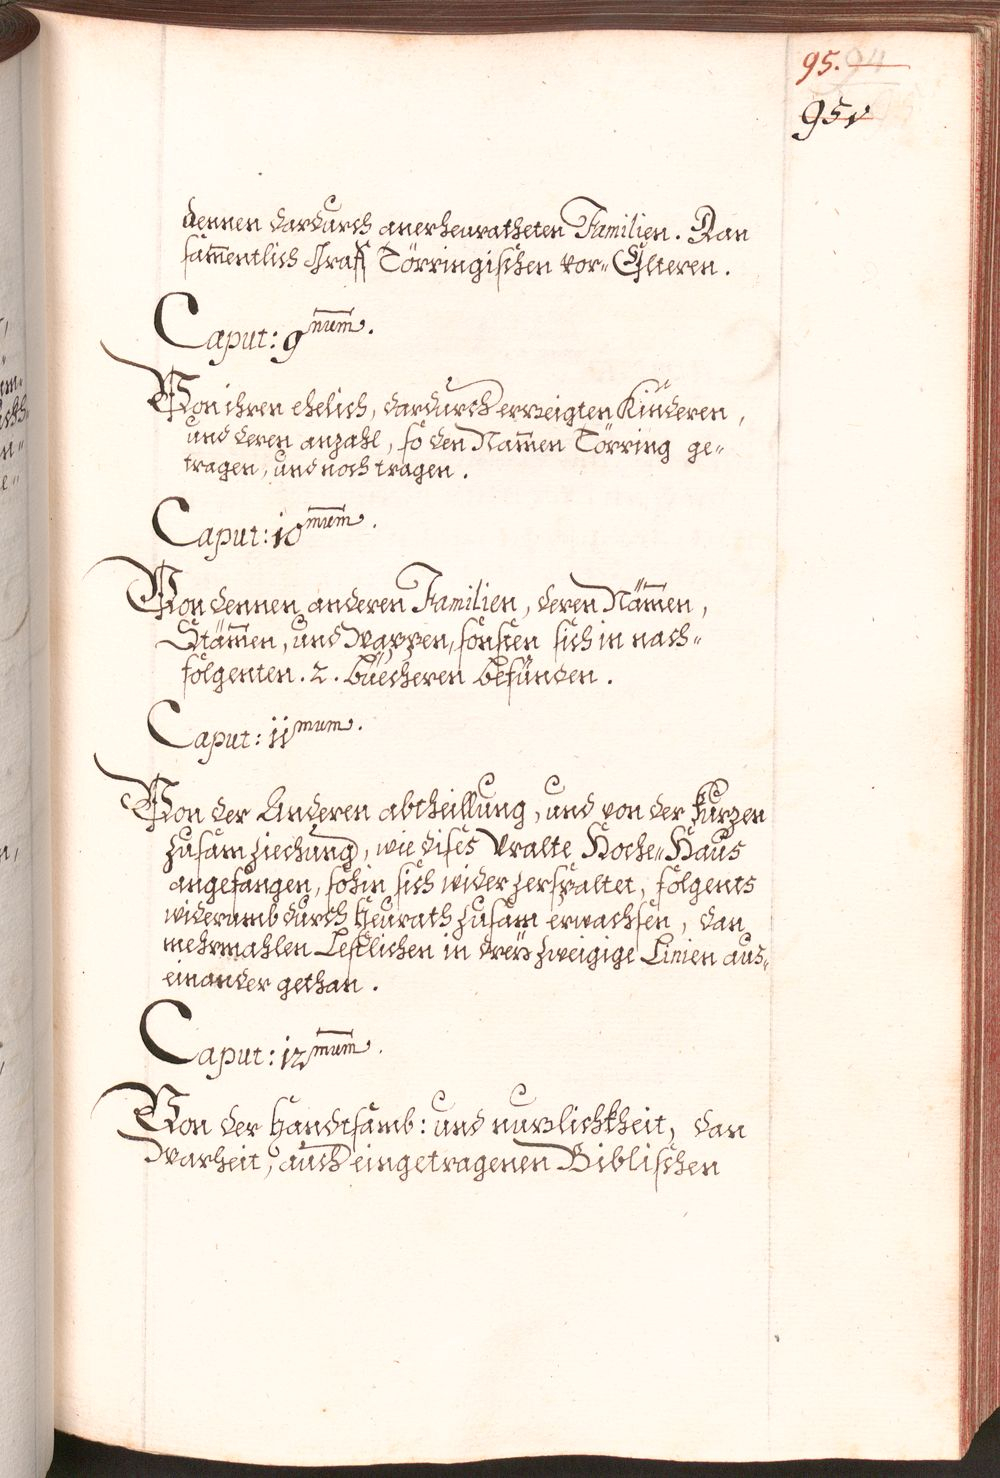 95. 94
95v
dennen dardurch anerheuratheten Familien. Dan
sam̄entlich Graff Törringischen vor= Elteren.
Caput: 9num̄.
Von ihren ehelich, dardurch erzeigten Kinderen,
und deren anzahl, so den Nam̄en Törring ge=
tragen, und noch tragen.
Caput: 10mum̄.
Von dennen anderen Familien, deren Näm̄en,
Stäm̄en, und Wappen, sonsten sich in nach=
folgenten. 2. büecheren befünden.
Caput: 11mum.
Von der Anderen abtheillung, und von der kurzen
zusam ziechung, wie dises Uralte Hoche= Haus
angefangen, sohin sich wider zerspaltet, folgents
widerumb durch Heurath zusam erwachsen, dan
mehrmahlen Lestlichen in dreÿ zweigige Linien aus=
einander gethan.
Caput: 12mum̄.
Von der handtsamb: und nuzlichkheit, dan
Warheit, auch eingetragenen Biblischen